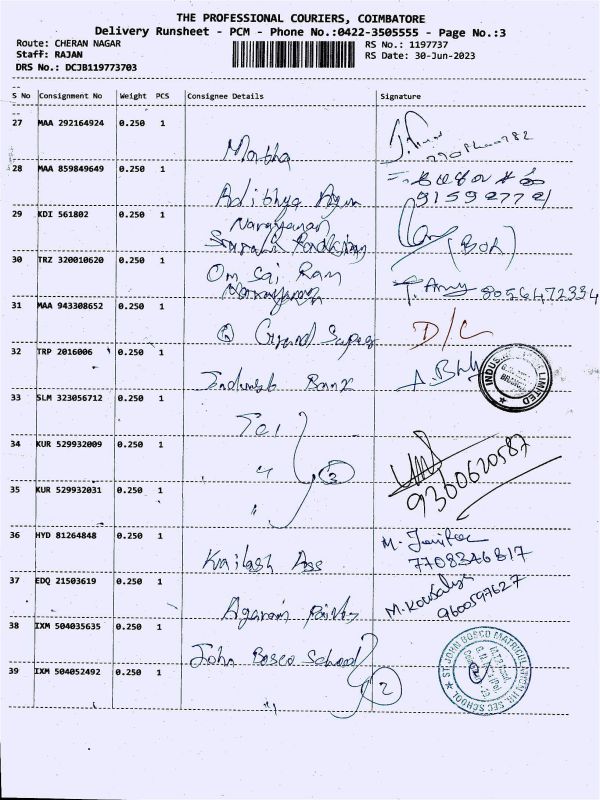 THE PROFESSIONAL COURIERS, COIMBATORE
Delivery Runsheet - PCM - Phone No.:0422-3505555 - Page No.:3
Route: CHERAN NAGAR
RS No.: 1197737
Staff: RAJAN
RS Date: 30-Jun-2023
DRS No.: DCJB119773703
S No Consignment No Weight PCS Consignee Details Signature
27 MAA 292164924 0.250 1
Martha
28 MAA 859849649 0.250 1
Adithya
29 KDI 561802 0.250 1
Narayanan
(BOR)
30 TRZ 320010620 0.250 1
Om Sai Ram
8056472334
31 MAA 943308652 0.250 1
Grand D/C
32 TRP 2016006 0.250 1
Bank
33 SLM 323056712 0.250 1
34 KUR 529932009 0.250 1
" 3
9360620587
35 KUR 529932031 0.250 1
"
36 HYD 81264848 0.250 1
Kailash Ass
M. Jenifer
7708346817
37 EDQ 21503619 0.250 1
Agaram
M. Kowsalya
9600597627
38 IXM 504035635 0.250 1
John Bosco School
ST JOHN BOSCO MATRICULATION HR. SEC. SCHOOL
39 IXM 504052492 0.250 1
" 2